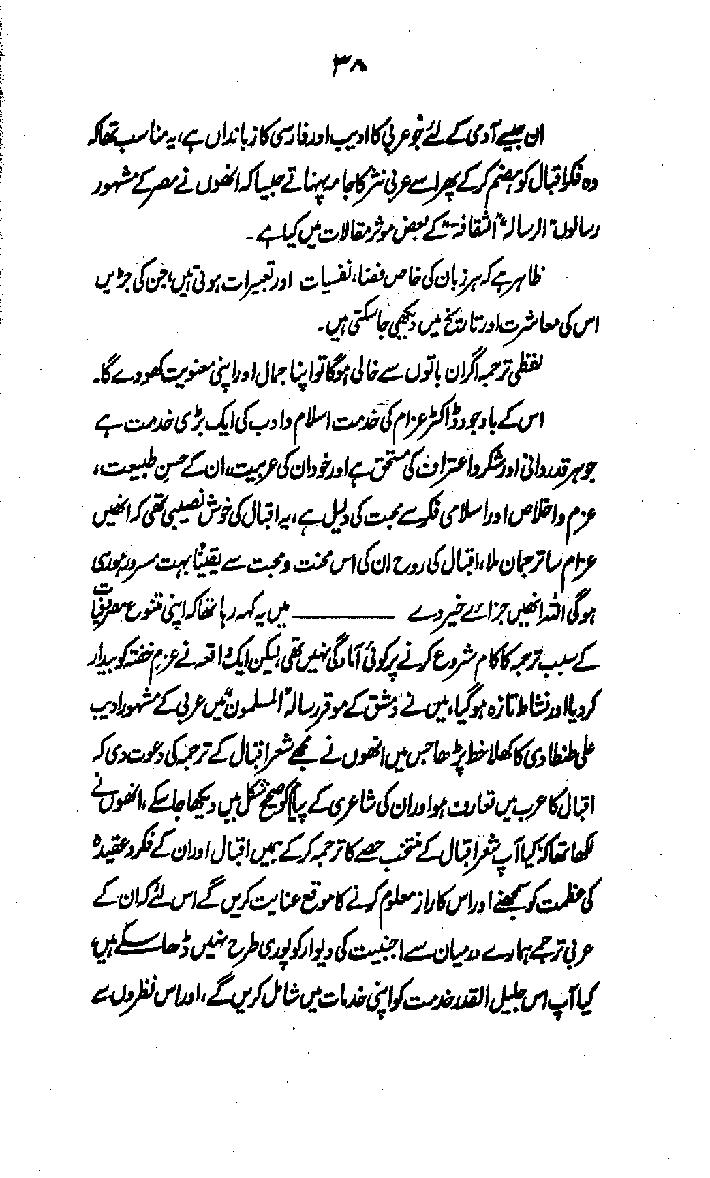 ۳۸
ان جیسے آدمی کے لئے جو عربی کا ادیب اور فارسی کا زبانداں ہے، یہ مناسب تھا کہ
وہ فکر اقبال کو ہضم کر کے پھر اسے عربی نثر کا جامہ پہناتے جیسا کہ انھوں نے مصر کے مشہور
رسالوں "الرسالہ" "الثقافۃ" کے بعض موثر مقالات میں کیا ہے۔
ظاہر ہے کہ ہر زبان کی خاص فضا، نفسیات اور تعبیرات ہوتی ہیں، جن کی جڑیں
اس کی معاشرت اور تاریخ میں دیکھی جا سکتی ہیں۔
لفظی ترجمہ اگر ان باتوں سے خالی ہو گا تو اپنا جمال اور اپنی معنویت کھو دے گا۔
اس کے باوجود ڈاکٹر عزام کی خدمت اسلام و ادب کی ایک بڑی خدمت ہے
جو ہر قدردانی اور شکر و اعتراف کی مستحق ہے اور خود ان کی عربیت، ان کے حسن طبیعت،
عزم و اخلاص اور اسلامی فکر سے محبت کی دلیل ہے، یہ اقبال کی خوش نصیبی تھی کہ انھیں
عزام سا ترجمان ملا، اقبال کی روح ان کی اس محنت و محبت سے یقیناً بہت مسرور ہو رہی
ہو گی اللہ انھیں جزائے خیر دے ـــــــــــ میں یہ کہہ رہا تھا کہ اپنی متنوع مصروفیات
کے سبب ترجمہ کا کام شروع کرنے پر کوئی آمادگی نہیں تھی، لیکن ایک واقعہ نے عزم خفتہ کو بیدار
کر دیا اور نشاط تازہ ہو گیا، میں نے دمشق کے موقر رسالہ "المسلمون" میں عربی کے مشہور ادیب
علی طنطاوی کا کھلا خط پڑھا جس میں انھوں نے مجھے شعر اقبال کے ترجمہ کی دعوت دی کہ
اقبال کا عرب میں تعارف ہو اور ان کی شاعری کے پیام کو صحیح شکل میں دیکھا جا سکے، انھوں نے
لکھا تھا کہ: کیا آپ شعر اقبال کے منتخب حصے کا ترجمہ کر کے ہمیں اقبال اور ان کے فکر و عقیدہ
کی عظمت کو سمجھنے اور اس کا راز معلوم کرنے کا موقع عنایت کریں گے اس لئے کہ ان کے
عربی ترجمے ہمارے درمیان سے اجنبیت کی دیوار کو پوری طرح نہیں ڈھا سکے ہیں
کیا آپ اس جلیل القدر خدمت کو اپنی خدمات میں شامل کریں گے، اور اس نظروں سے